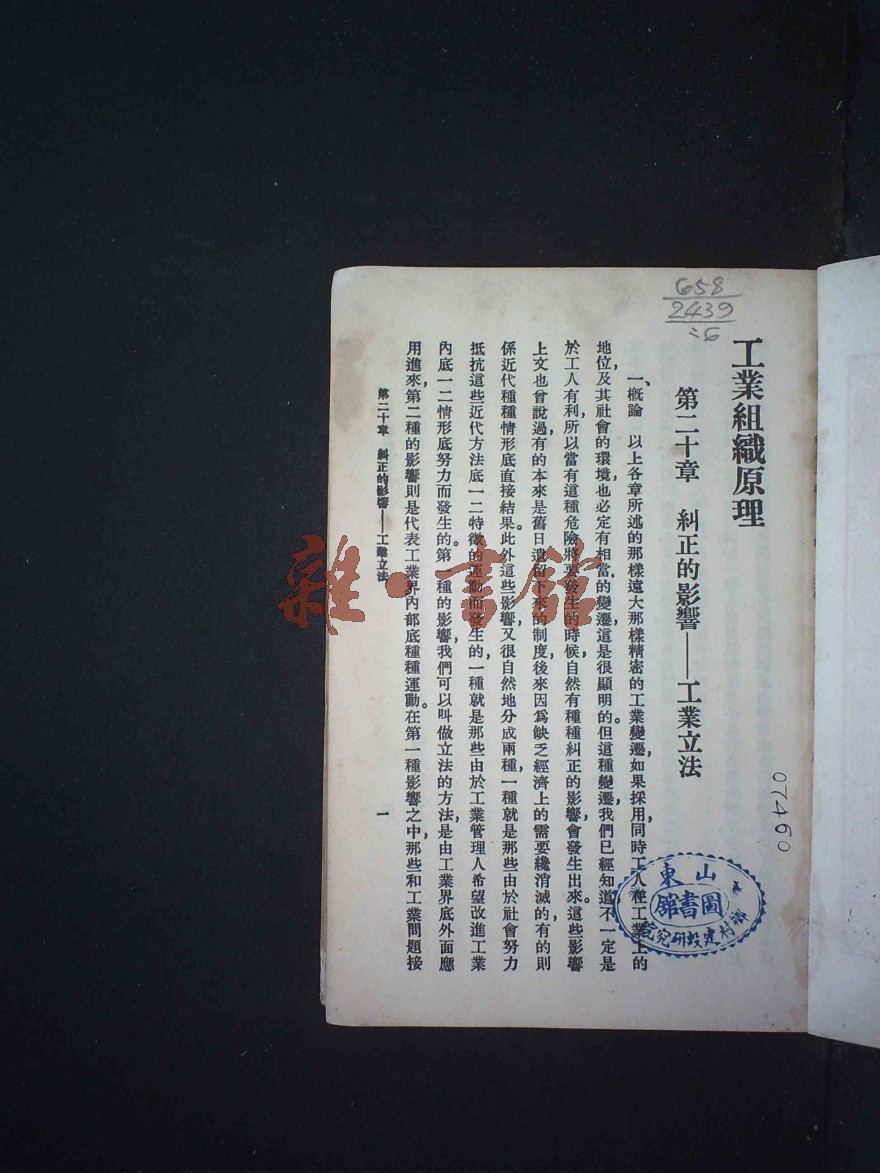 658
2439
=6
工業組織原理
第二十章　糾正的影響——工業立法
一、概論　以上各章所述的那樣遠大那樣精密的工業變遷，如果採用，同時工人在工業上的
地位及其社會的環境，也必定有相當的變遷，這是很顯明的。但這種變遷，我們已經知道，不一定是
於工人有利，所以當有這種危險將要發生的時候，自然有種種糾正的影響會發生出來。這些影響
上文也曾說過，有的本來是舊日遺留下來的制度，後來因爲缺乏經濟上的需要纔消滅的，有的則
係近代種種情形底直接結果。此外這些影響，又很自然地分成兩種，一種就是那些由於社會努力
抵抗這些近代方法底一二特徵的運動而發生的，一種就是那些由於工業管理人希望改進工業
內底一二情形底努力而發生的。第一種的影響，我們可以叫做立法的方法，是由工業界底外面應
用進來，第二種的影響則是代表工業界內部底種種運動。在第一種影響之中，那些和工業問題接
第二十章　糾正的影響——工業立法
一
07460
山東鄉村建設研究院
圖書館
雜·書館